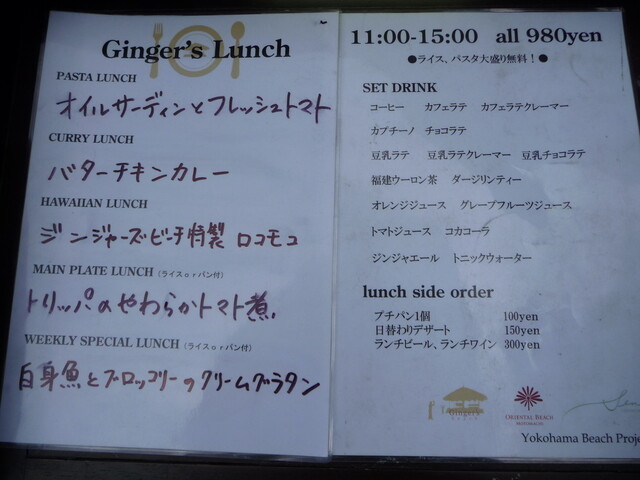 Ginger's Lunch
PASTA LUNCH
オイルサーディンとフレッシュトマト
CURRY LUNCH
バターチキンカレー
HAWAIIAN LUNCH
ジンジャーズビーチ特製 ロコモコ
MAIN PLATE LUNCH (ライスorパン付)
トリッパのやわらかトマト煮.
WEEKLY SPECIAL LUNCH (ライスorパン付)
白身魚とブロッコリーのクリームグラタン
11:00-15:00 all 980yen
●ライス、パスタ大盛り無料!●
SET DRINK
コーヒー カフェラテ カフェラテクレーマー
カプチーノ チョコラテ
豆乳ラテ 豆乳ラテクレーマー 豆乳チョコラテ
福建ウーロン茶 ダージリンティー
オレンジジュース グレープフルーツジュース
トマトジュース コカコーラ
ジンジャエール トニックウォーター
lunch side order
プチパン1個 100yen
日替わりデザート 150yen
ランチビール、ランチワイン 300yen
Ginger's
ORIENTAL BEACH
Yokohama Beach Proje